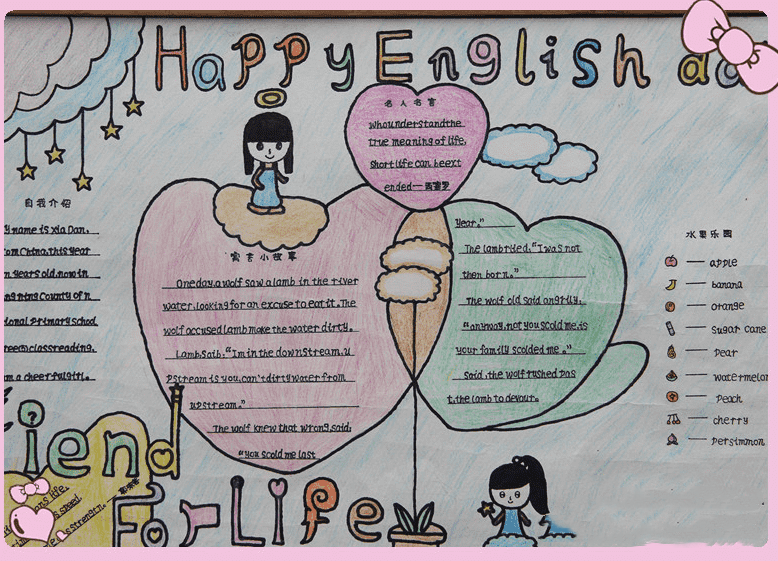 Happy English
自我介绍
y name is xia Dan.
om China,this year
n years old,now in
County of n
ional Primary school
reading,
m a cheerful girl.
名人名言
who understand the
true meaning of life,
short life can be ext
ended—西塞罗
寓言小故事
One day,a wolf saw a lamb in the river
water,looking for an excuse to eat it.The
wolf accused lamb make the water dirty.
Lamb said:"I'm in the downstream,u
pstream is you,can't dirty water from
upstream."
The wolf knew that wrong,said:
"you scold me last
year."
The lamb cried,"I was not
then born."
The wolf old said angrily,
"anyway,not you scold me,is
your family scolded me."
Said,the wolf rushed pas
t,the lamb to devour.
水果乐园
apple
banana
orange
sugar cane
pear
watermelon
peach
cherry
persimmon
iend
For Life
life,
speed,
strength.